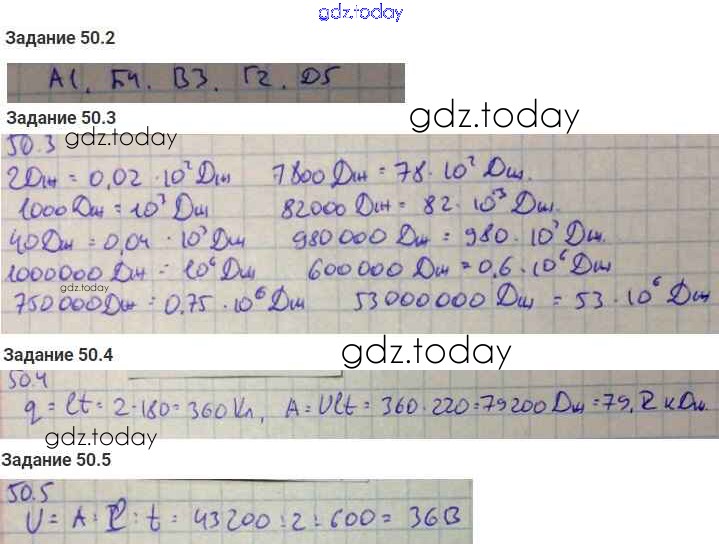 gdz.today
Задание 50.2
А1. Б4. В3. Г2. D5
Задание 50.3
gdz.today
50.3 gdz.today
2Дж = 0,02 · 10² Дж 7800 Дж = 78 · 10² Дж.
1000 Дж = 10³ Дж 82000 Дж = 82 · 10³ Дж.
40 Дж = 0,04 · 10³ Дж 980 000 Дж = 980 · 10³ Дж.
1000000 Дж = 10⁶ Дж 600 000 Дж = 0,6 · 10⁶ Дж
gdz.today
750 000 Дж = 0,75 · 10⁶ Дж 53 000 000 Дж = 53 · 10⁶ Дж
Задание 50.4
gdz.today
50.4
q = It = 2 · 180 = 360 Кл, A = UIt = 360 · 220 = 79200 Дж = 79,2 кДж.
gdz.today
Задание 50.5
50.5
U = A : I : t = 43200 : 2 : 600 = 36В